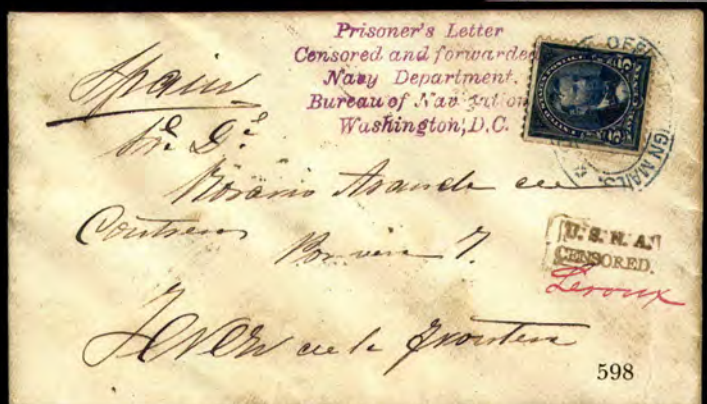 Prisoner's Letter
Censored and forwarded
Navy Department.
Bureau of Navigation
Washington, D.C.
Spain
Sra. Da.
Rosario de
Contreras
Porvera 7.
Jerez de la Frontera
U.S.N.A.
CENSORED.
Leroux
IGN MAILS.
598